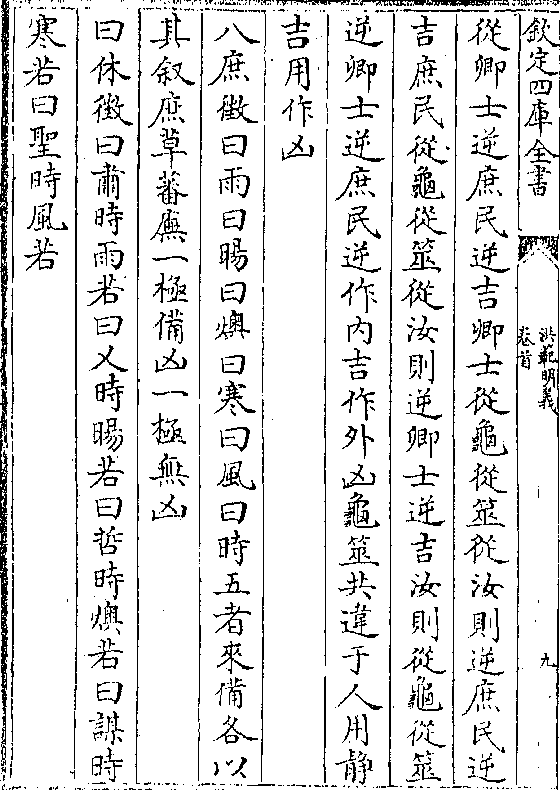 欽定四庫全書
洪範明義
卷首
九
從卿士逆庶民逆吉卿士從龜從筮從汝則逆庶民逆
吉庶民從龜從筮從汝則逆卿士逆吉汝則從龜從筮
逆卿士逆庶民逆作内吉作外凶龜筮共違于人用静
吉用作凶
八庶徵曰雨曰暘曰燠曰寒曰風曰時五者來備各以
其叙庶草蕃廡一極備凶一極無凶
曰休徴曰肅時雨若曰乂時暘若曰哲時燠若曰謀時
寒若曰聖時風若